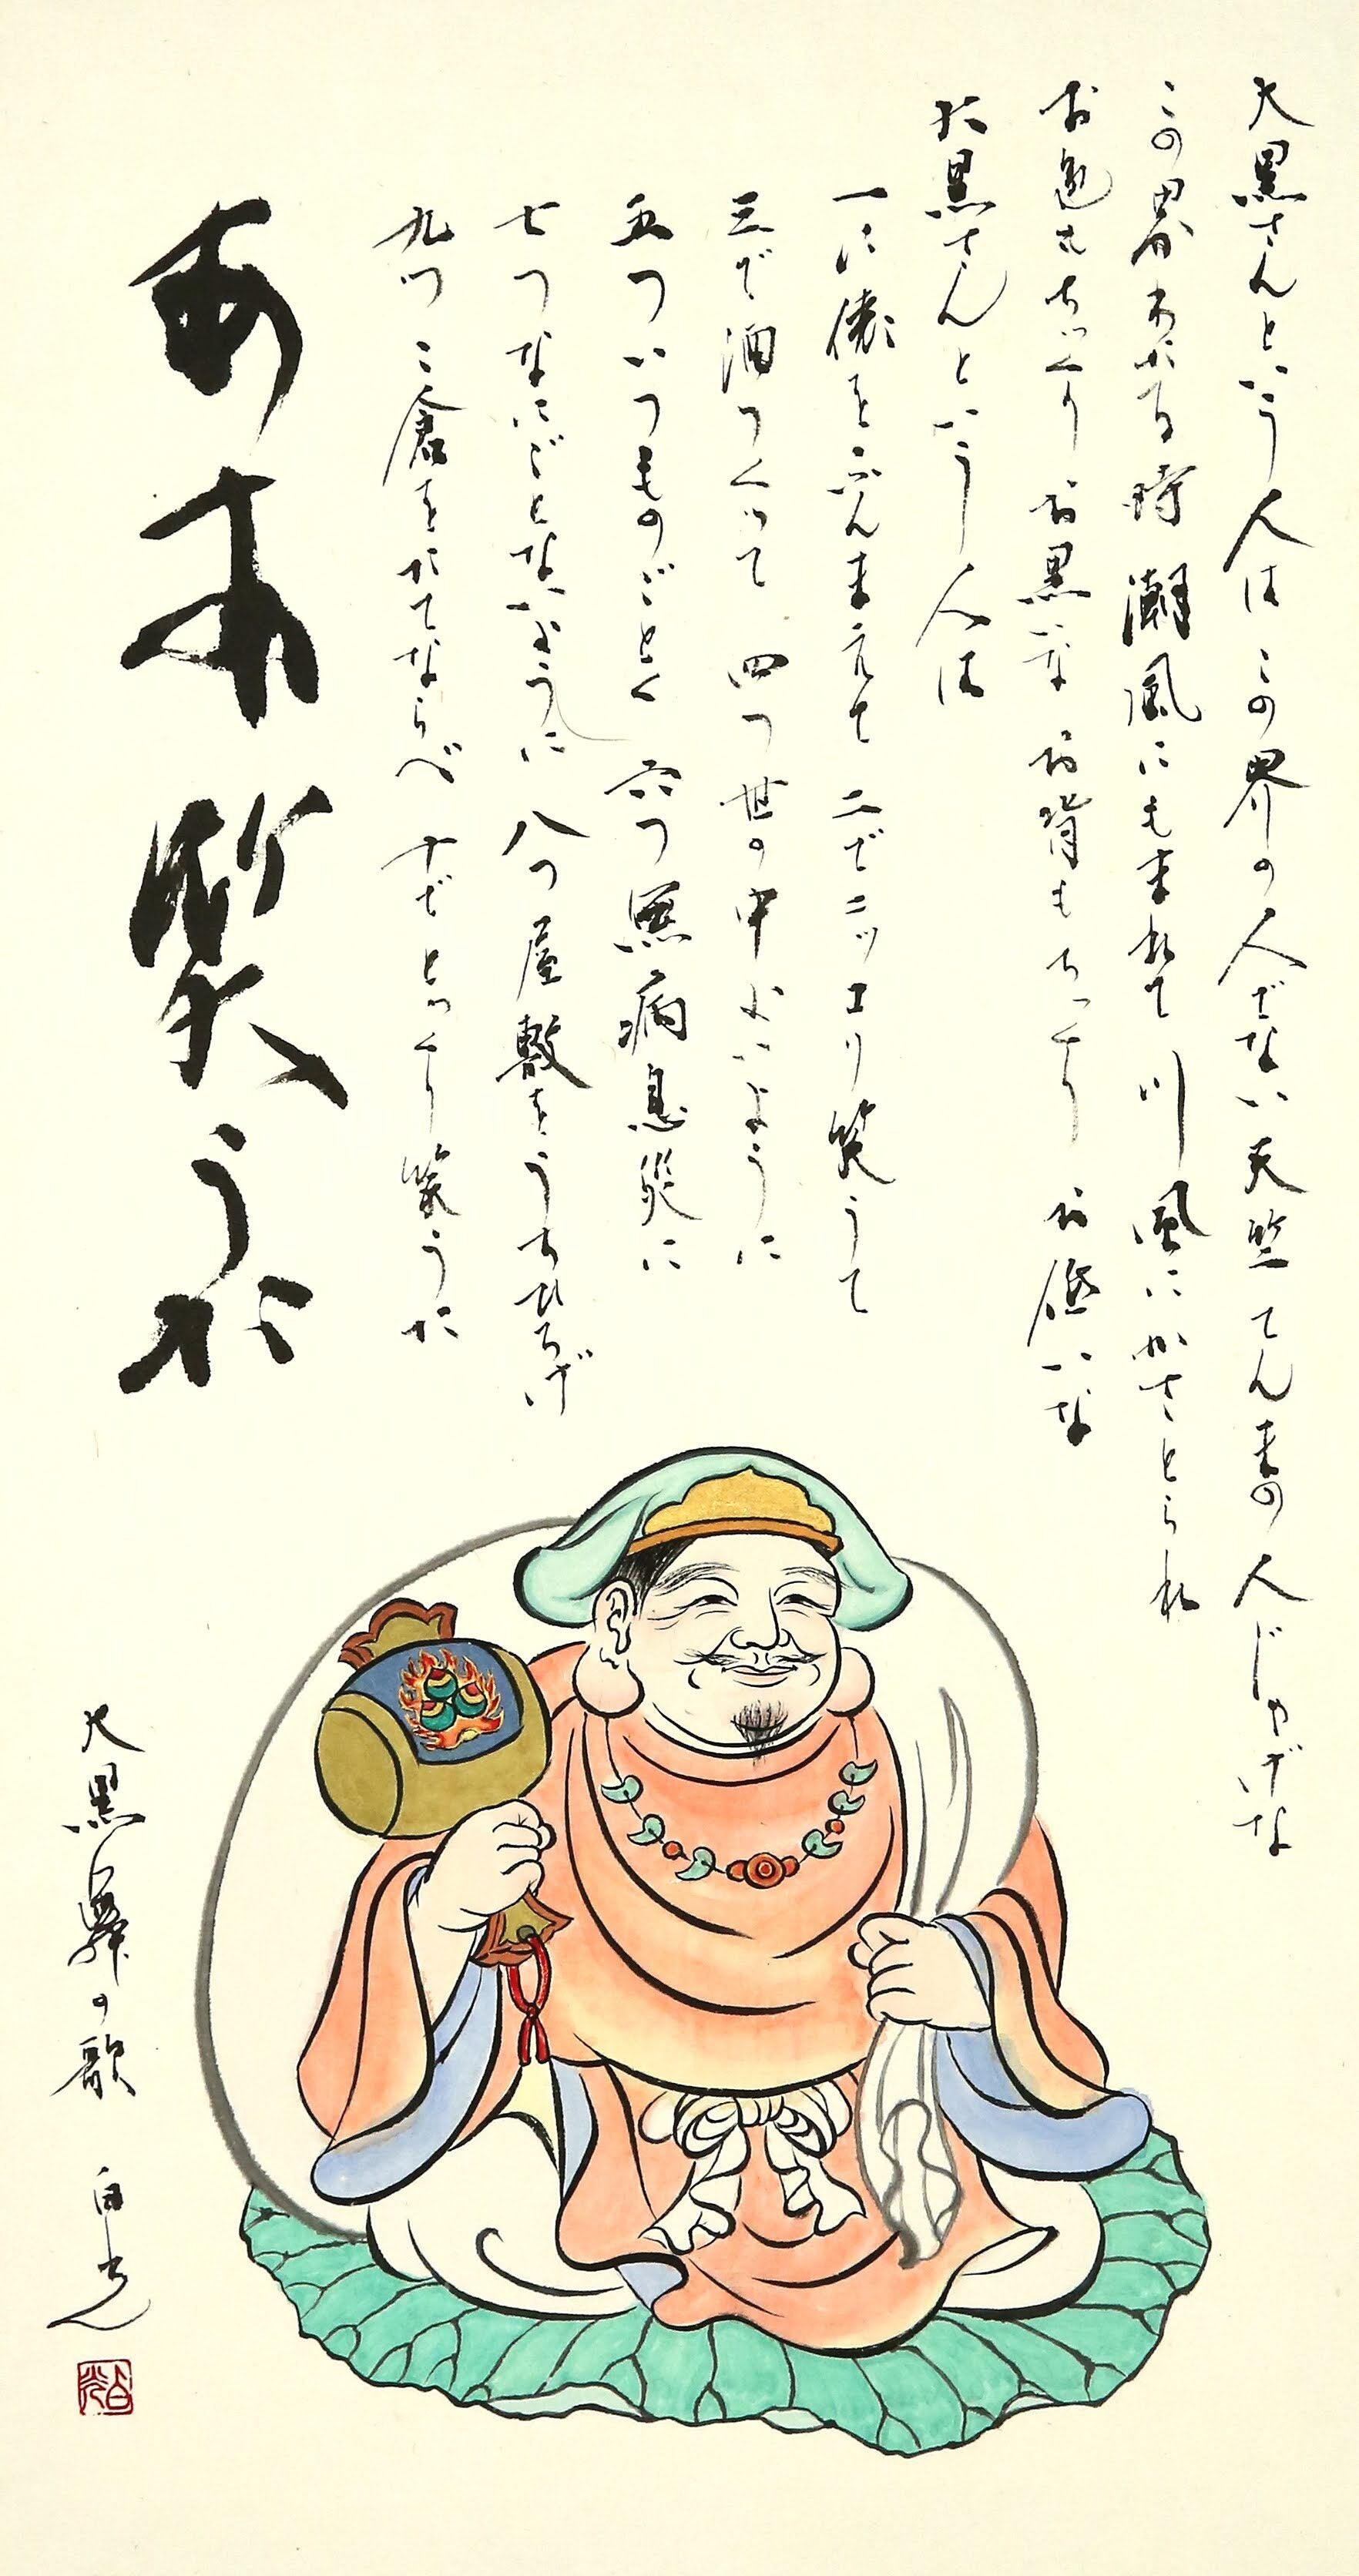 大黒さんという人は この界の人でない 天竺てんまの人じゃげな
この界わたる時 潮風にもまれて 川風にかさとられ
お色もちっくり お黒いな お背もちっくり お低いな
大黒さんという人は
一に俵をふんまえて 二でニッコリ笑うて
三で酒つくって 四つ世の中よいように
五ついつものごとく 六つ無病息災に
七つなにごとないように 八つ屋敷をうちひろげ
九つこ倉をたてならべ 十でとっくり笑うた
あゝ笑うた
大黒舞の歌 白光